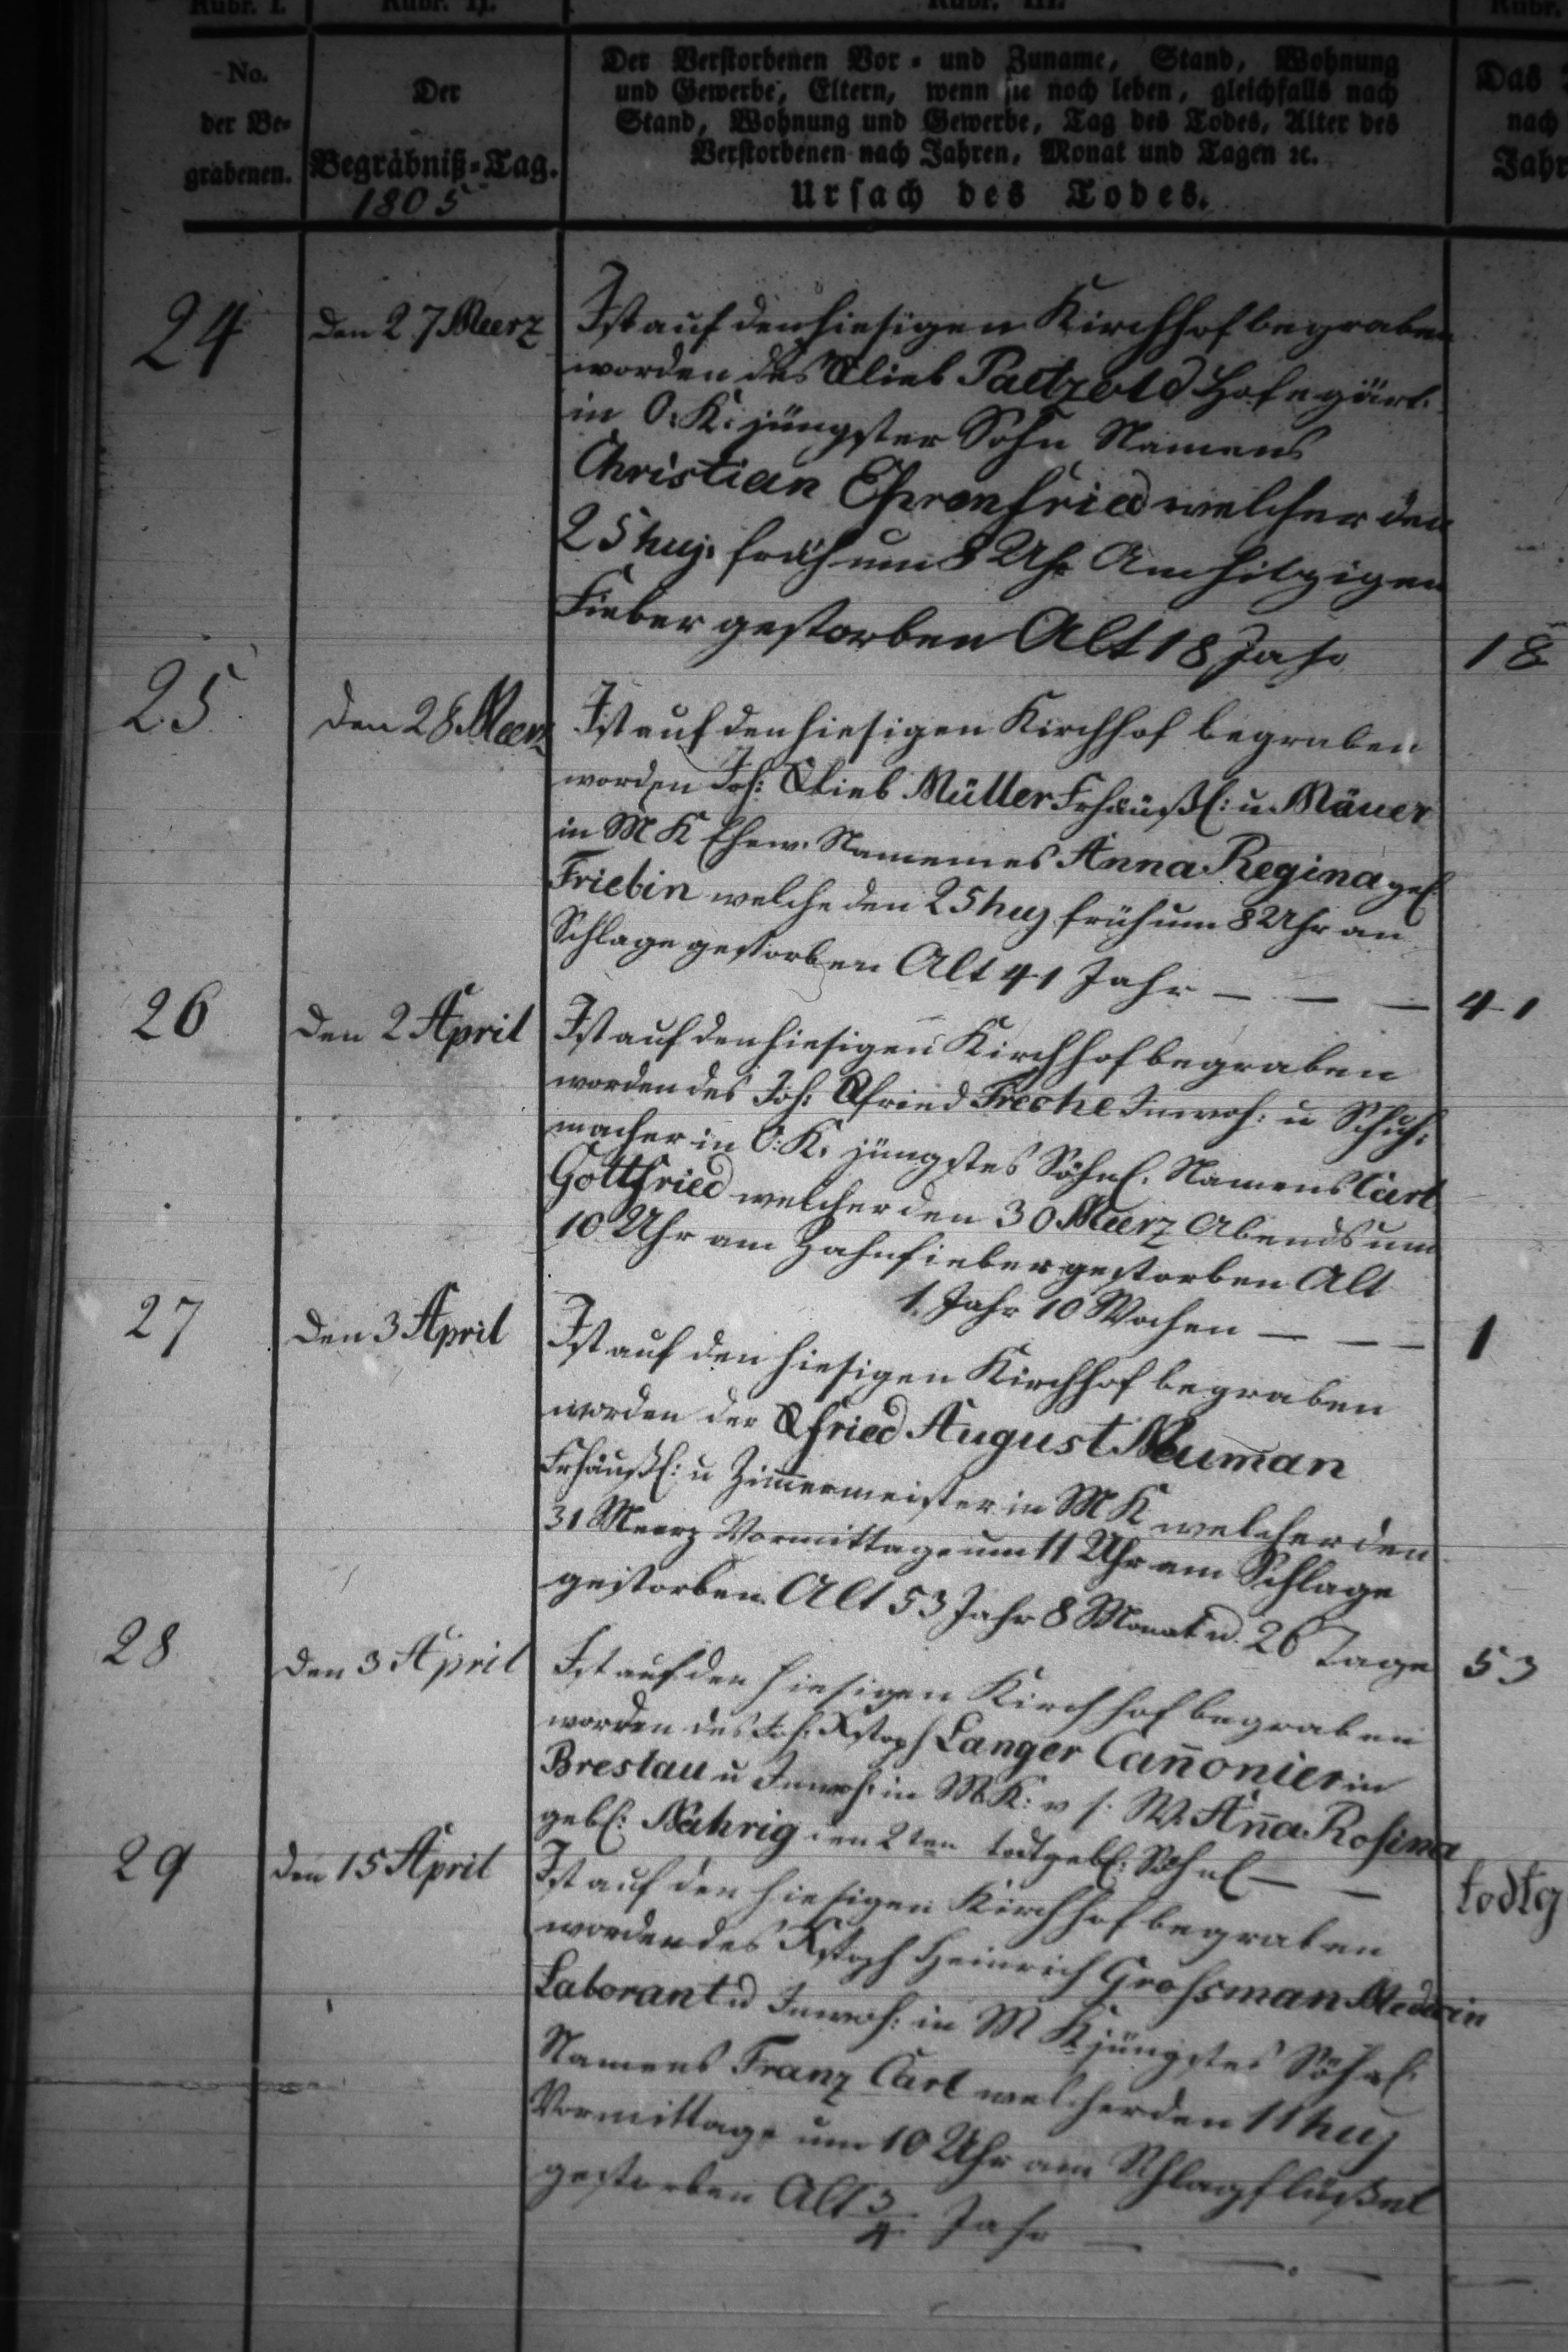 Rubr. I.
Rubr. II.
Rubr. III.
Rubr.
No.
der Be=
grabenen.
Der
Begräbniß=Tag.
1805
Der Verstorbenen Vor = und Zuname, Stand, Wohnung
und Gewerbe, Eltern, wenn sie noch leben, gleichfalls nach
Stand, Wohnung und Gewerbe, Tag des Todes, Alter des
Verstorbenen nach Jahren, Monat und Tagen ꝛc.
Ursach des Todes.
Das
nach
Jahr
24
den 27 Meerz
Ist auf den hiesigen Kirchhof begraben
worden des Glieb Paetzold Hofegärt.
in O. K. jüngster Sohn Namens
Christian Ehrenfried welcher den
25 huj. früh um 8 Uhr Am hitzigen
Fieber gestorben Alt 18 Jahr
18
25
den 28 Meerz
Ist auf den hiesigen Kirchhof begraben
worden Joh: Glieb Müller Frhäußl: u. Mäuer
in M K Ehew. Namemes Anna Regina geb
Friebin welche den 25 huj früh um 8 Uhr an
Schlage gestorben Alt 41 Jahr — — —
41
26
den 2 April
Ist auf den hiesigen Kirchhof begraben
worden des Joh: Gfried Freche Inwoh: u Schuh:
macher in O: K. jüngstes Söhnl. Namens Carl
Gottfried welcher den 30 Meerz Abends um
10 Uhr am Zahnfieber gestorben Alt
1. Jahr 10 Wochen — — —
1
27
den 3 April
Ist auf den hiesigen Kirchhof begraben
worden der Gfried August Neuman
Frhäußl: u Zim̄ermeister in M K welcher den
31 Meerz Vormittage um 11 Uhr am Schlage
gestorben. Alt 53 Jahr 8 Monat u. 26 Tage
53
28
den 3 April
Ist auf den hiesigen Kirchhof begraben
worden des Joh: Xstoph Langer Can̄onier in
Breslau u Inwoh: in M K: v s: W. An̄a Rosina
gebl: Nahrig den 2ten todtgebl: Söhnl — —
todtg
29
den 15 April
Ist auf den hiesigen Kirchhof begraben
worden des Xstoph Heinrich Grossman Medicin
Laborant u Inwoh: in M K jüngstes Söhnl.
Namens Franz Carl welcher den 11 huj
Vormittage um 10 Uhr am Schlagflüßel
gestorben Alt 3/4 Jahr — — —